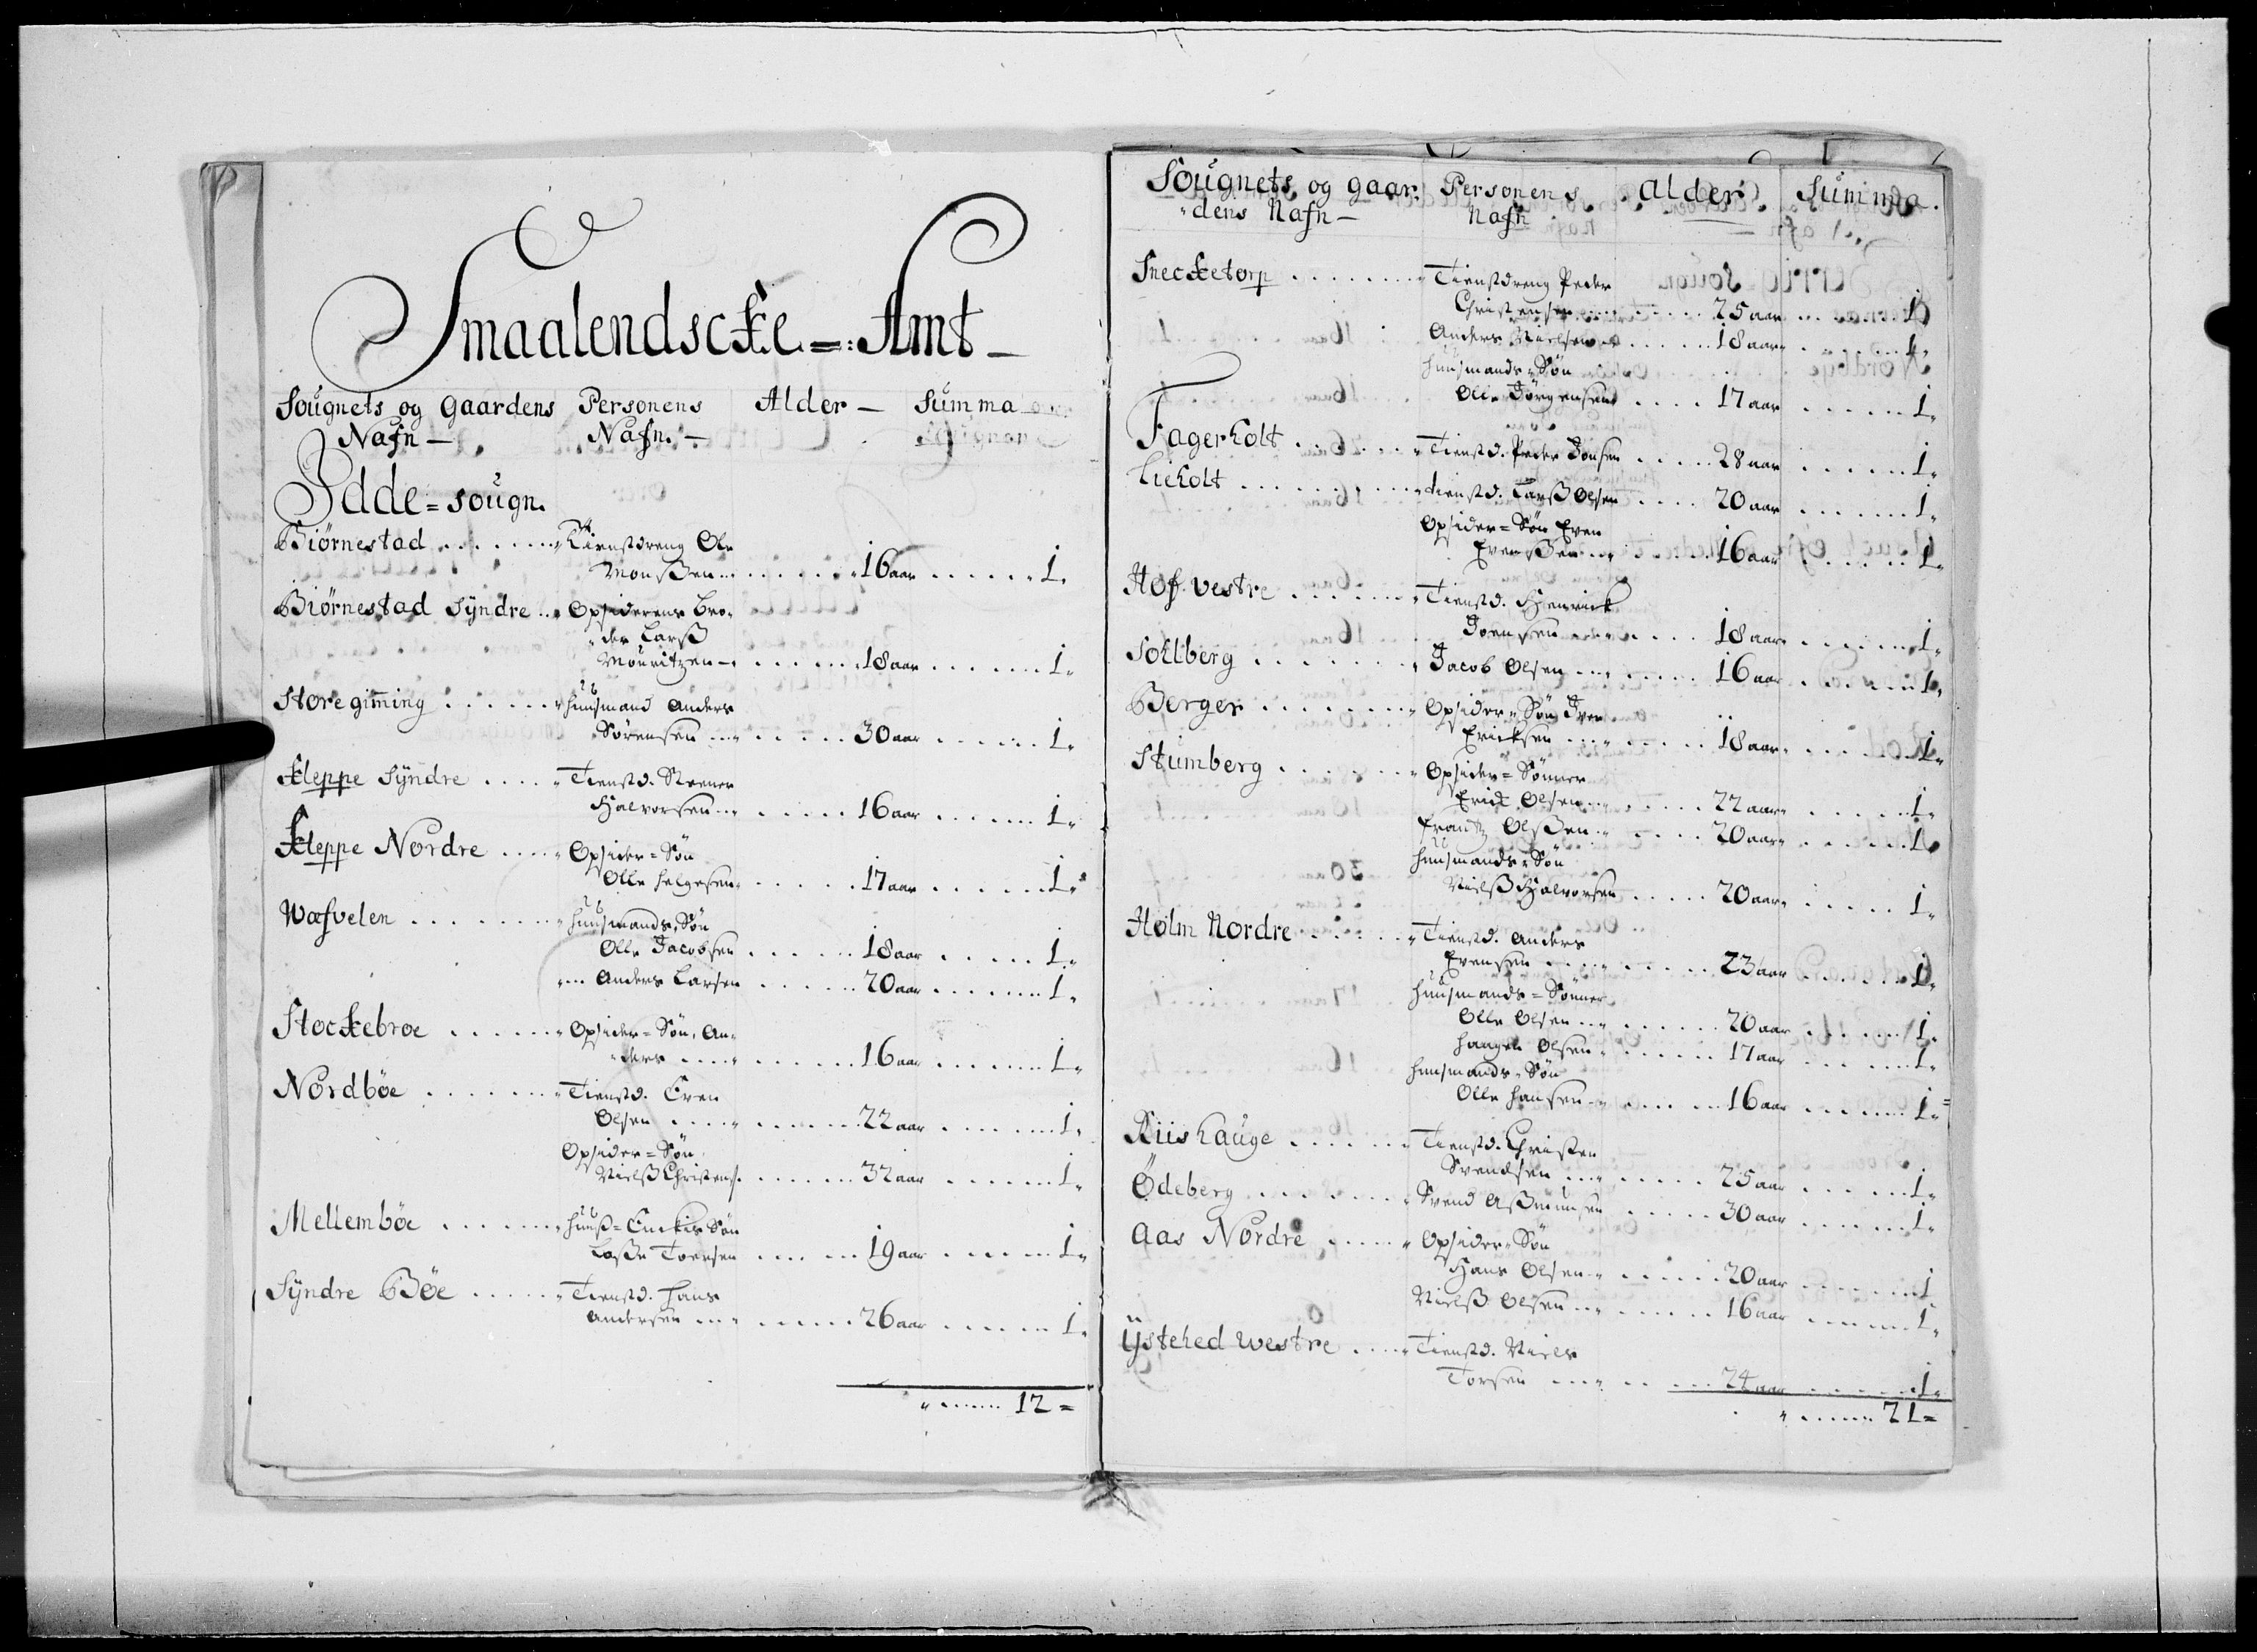 Smaalendscke=Amt
Sougnets og Gaardens Personens Alder Summa
Nafn Nafn.
Idde=sougn.
Biørnestad ....... Tienstdreng Ole
Monssen ....... 16 aar ...... 1.
Biørnestad Syndre ... Opsiderens bro-
der Larss
Mouritzen ....... 18 aar ....... 1.
Store gim̄ing ....... huusmand Anders
Sørensen ....... 30 aar ...... 1.
Kleppe Syndre .... Tienstd. Steener
Halvorsen ....... 16 aar ....... 1.
Kleppe Nordre .... Opsider=Søn
Olle Helgesen ...... 17 aar ....... 1.
Wæfvelen ....... huusmands Søn
Olle Jacobsen ...... 18 aar ...... 1.
Anders Larsen ...... 20 aar ....... 1.
Stockebroe ....... Opsider=Søn, An-
ders ....... 16 aar ....... 1.
Nordbøe ....... Tienstd. Even
Olsen ....... 22 aar ....... 1.
Opsider=Søn
Nielss Christens. ...... 32 aar ....... 1.
Mellembøe ....... huuss=Enckis Søn
Lasse Toersen ...... 19 aar ...... 1.
Syndre Bøe ...... Tienstd. Hans
Andersen ....... 26 aar ....... 1.
....... 12=
Sougnets og gaar- Personens Alder Summa.
dens Nafn Nafn
Snecketorp ....... Tienstdreng Peder
Christensen ....... 25 aar ....... 1.
Anders Nielsen ...... 18 aar ....... 1.
huusmands Søn
Olle Jørgensen .... 17 aar ...... 1.
Fagerholt ....... Tienstd. Peder Jonsen ..... 28 aar ...... 1.
Lieholt ....... tienstd. Larss Olsen .... 20 aar ....... 1.
Opsider=Søn Even
Evenssen ....... 16 aar ....... 1.
Hof vestre ....... Tienstd. Henrick
Joensen ....... 18 aar ....... 1.
Sollberg ....... Jacob Olsen ....... 16 aar ....... 1.
Berger ....... Opsider Søn Iver
Ericksen ....... 18 aar ....... 1.
Stumberg ....... Opsider=Sønner
Erick Olsen ....... 22 aar ...... 1.
Frantz Olssen ..... 20 aar ....... 1.
huusmands Søn
Nielss Halvorsen ..... 20 aar ...... 1.
Holm Nordre ...... Tienstd. Anders
Evensen ....... 23 aar ....... 1.
huusmands=Sønner
Olle Olsen ....... 20 aar ....... 1.
Haagen Olsen ...... 17 aar ....... 1.
huusmands Søn
Olle Hansen ....... 16 aar ....... 1=
Riishauge ....... Tienstd. Christen
Svendsen ....... 25 aar ....... 1.
Ødeberg ....... Svend Assmunsen ..... 30 aar ....... 1.
Aas Nordre ..... Opsider Søn
Hans Olsen ....... 20 aar ....... 1
Nielss Olsen ....... 16 aar ....... 1.
Ÿstehed westre .... Tienstd. Niels
Torsen ....... 24 aar ....... 1.
....... 21=